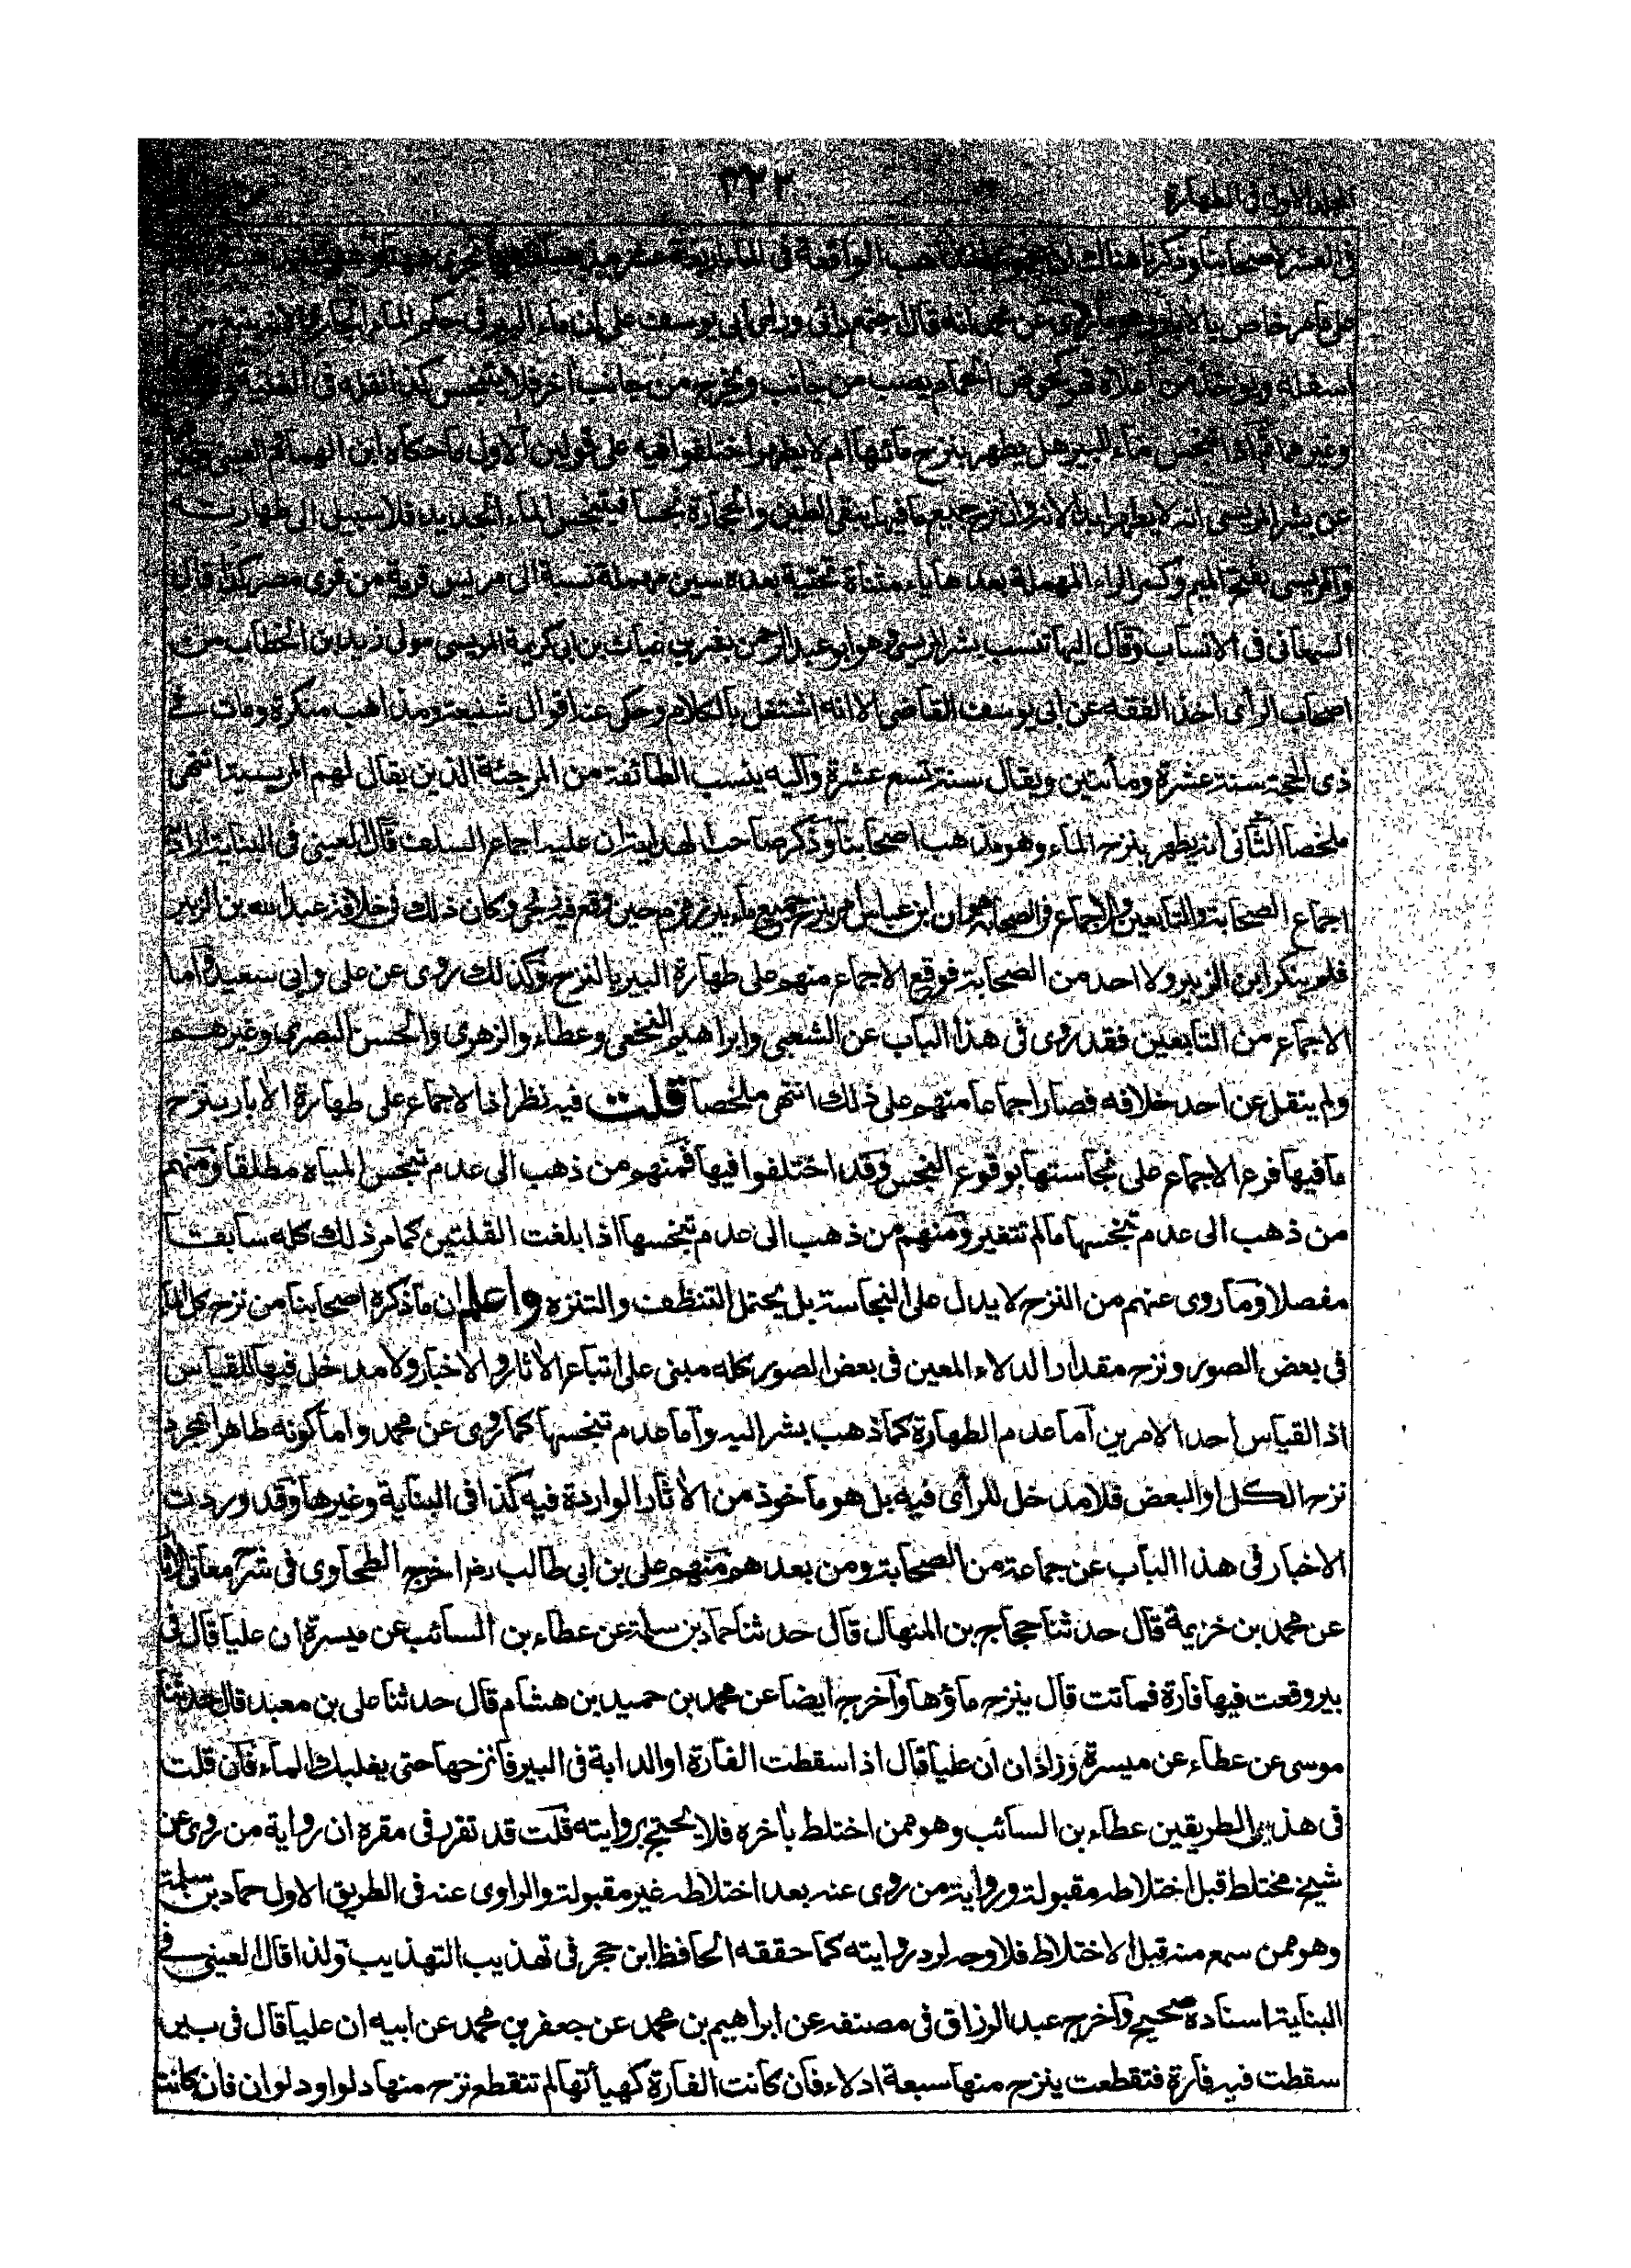 ٣٢٢
في الطهارة
في العشر لاصحابنا وذكرنا هنالك ان المذاهب الواقعة في الماء اربعة عشر
خاص بالآبار وهو ما روى عن محمد انه قال اجتمع رائي وراي ابي يوسف على ان ماء البير في حكم الماء الجاري لانه ينبع من
اسفله ويوخذ من اعلاه فهو كحوض الحمام يصب من جانب ويخرج من جانب آخر فلا يتنجس كذا نقله في الغنية
وغيرها فاذا تنجس ماء البير هل يطهر بنزح مائها ام لا يطهر اختلفوا فيه على قولين الاول ما حكاه ابن الهمام والعيني
عن بشر المريسي انه لا يطهر ابدا لانه وان نزح جميع ما فيها يبقى الطين والحجارة نجسا فيتنجس الماء الجديد فلا سبيل الى طهارته
والمريسي بفتح الميم وكسر الراء المهملة بعدها ياء مثناة تحتية بعده سين مهملة نسبة الى مريس قرية من قرى مصر كذا قال
السمعاني في الانساب وقال اليها تنسب بشر المريسي وهو ابو عبد الرحمن بشر بن غياث بن ابي كريمة المريسي مولى زيد بن الخطاب من
اصحاب الرأى اخذ الفقه عن ابي يوسف القاضي الا انه اشتغل بالكلام وحكى عنه اقوال شنيعة ومذاهب منكرة ومات في
ذي الحجة سنة عشرة ومأتين ويقال سنة تسع عشرة واليه ينسب الطائفة من المرجئة الذين يقال لهم المريسية انتهى
ملخصا الثاني انه يطهر بنزح الماء وهو مذهب اصحابنا وذكر صاحب الهداية ان عليه اجماع السلف قال العيني في البناية اراد
اجماع الصحابة والتابعين والاجماع في الصحابة هو ان ابن عباس امر بنزح جميع ماء بير زمزم حين وقع فيه زنجي وكان ذلك في خلافة عبد الله بن الزبير
فلم ينكر ابن الزبير ولا احد من الصحابة فوقع الاجماع منهم على طهارة البير بالنزح وكذلك روى عن علي وابي سعيد واما
الاجماع من التابعين فقد روى في هذا الباب عن الشعبي وابراهيم النخعي وعطاء والزهري والحسن البصري وغيرهم
ولم ينقل عن احد خلافه فصار اجماعا منهم على ذلك انتهى ملخصا قلت فيه نظر اذ الاجماع على طهارة الآبار بنزح
ما فيها فرع الاجماع على نجاستها بوقوع النجس وقد اختلفوا فيها فمنهم من ذهب الى عدم تنجس المياه مطلقا ومنهم
من ذهب الى عدم تنجسها ما لم تتغير ومنهم من ذهب الى عدم تنجسها اذا بلغت القلتين كما مر ذلك كله سابقا
مفصلا وما روى عنهم من النزح لا يدل على النجاسة بل يحتمل التنظف والتنزه واعلم ان ما ذكره اصحابنا من نزح كل الماء
في بعض الصور ونزح مقدار الدلاء المعين في بعض الصور كله مبني على اتباع الاثار والاخبار ولا مدخل فيها للقياس
اذ القياس احد الامرين اما عدم الطهارة كما ذهب بشر اليه واما عدم تنجسها كما روى عن محمد واما كونه طاهرا بمجرد
نزح الكل او البعض فلا مدخل للرأى فيه بل هو ماخوذ من الاثار الواردة فيه كذا في البناية وغيرها وقد وردت
الاخبار في هذا الباب عن جماعة من الصحابة ومن بعدهم منهم علي بن ابي طالب رض اخرج الطحاوي في شرح معاني الاثار
عن محمد بن خزيمة قال حدثنا حجاج بن المنهال قال حدثنا حماد بن سلمة عن عطاء بن السائب عن ميسرة ان عليا قال في
بير وقعت فيها فارة فماتت قال ينزح ماؤها واخرج ايضا عن محمد بن حميد بن هشام قال حدثنا علي بن معبد قال حدثنا
موسى عن عطاء عن ميسرة وزاذان ان عليا قال اذا سقطت الفارة او الدابة في البير فانزحها حتى يغلبك الماء فان قلت
في هذين الطريقين عطاء بن السائب وهو ممن اختلط بأخره فلا يحتج بروايته قلت قد تقرر في مقره ان رواية من روى عن
شيخ مختلط قبل اختلاطه مقبولة ورواية من روى عنه بعد اختلاطه غير مقبولة والراوي عنه في الطريق الاول حماد بن سلمة
وهو ممن سمع منه قبل الاختلاط فلا وجه لرد روايته كما حققه الحافظ ابن حجر في تهذيب التهذيب ولذا قال العيني في
البناية اسناده صحيح واخرج عبد الرزاق في مصنفه عن ابراهيم بن محمد عن جعفر بن محمد عن ابيه ان عليا قال في بير
سقطت فيه فارة فتقطعت ينزح منها سبعة ادلاء فان كانت الفارة كهيأتها لم تتقطع نزح منها دلو او دلوان فان كانت